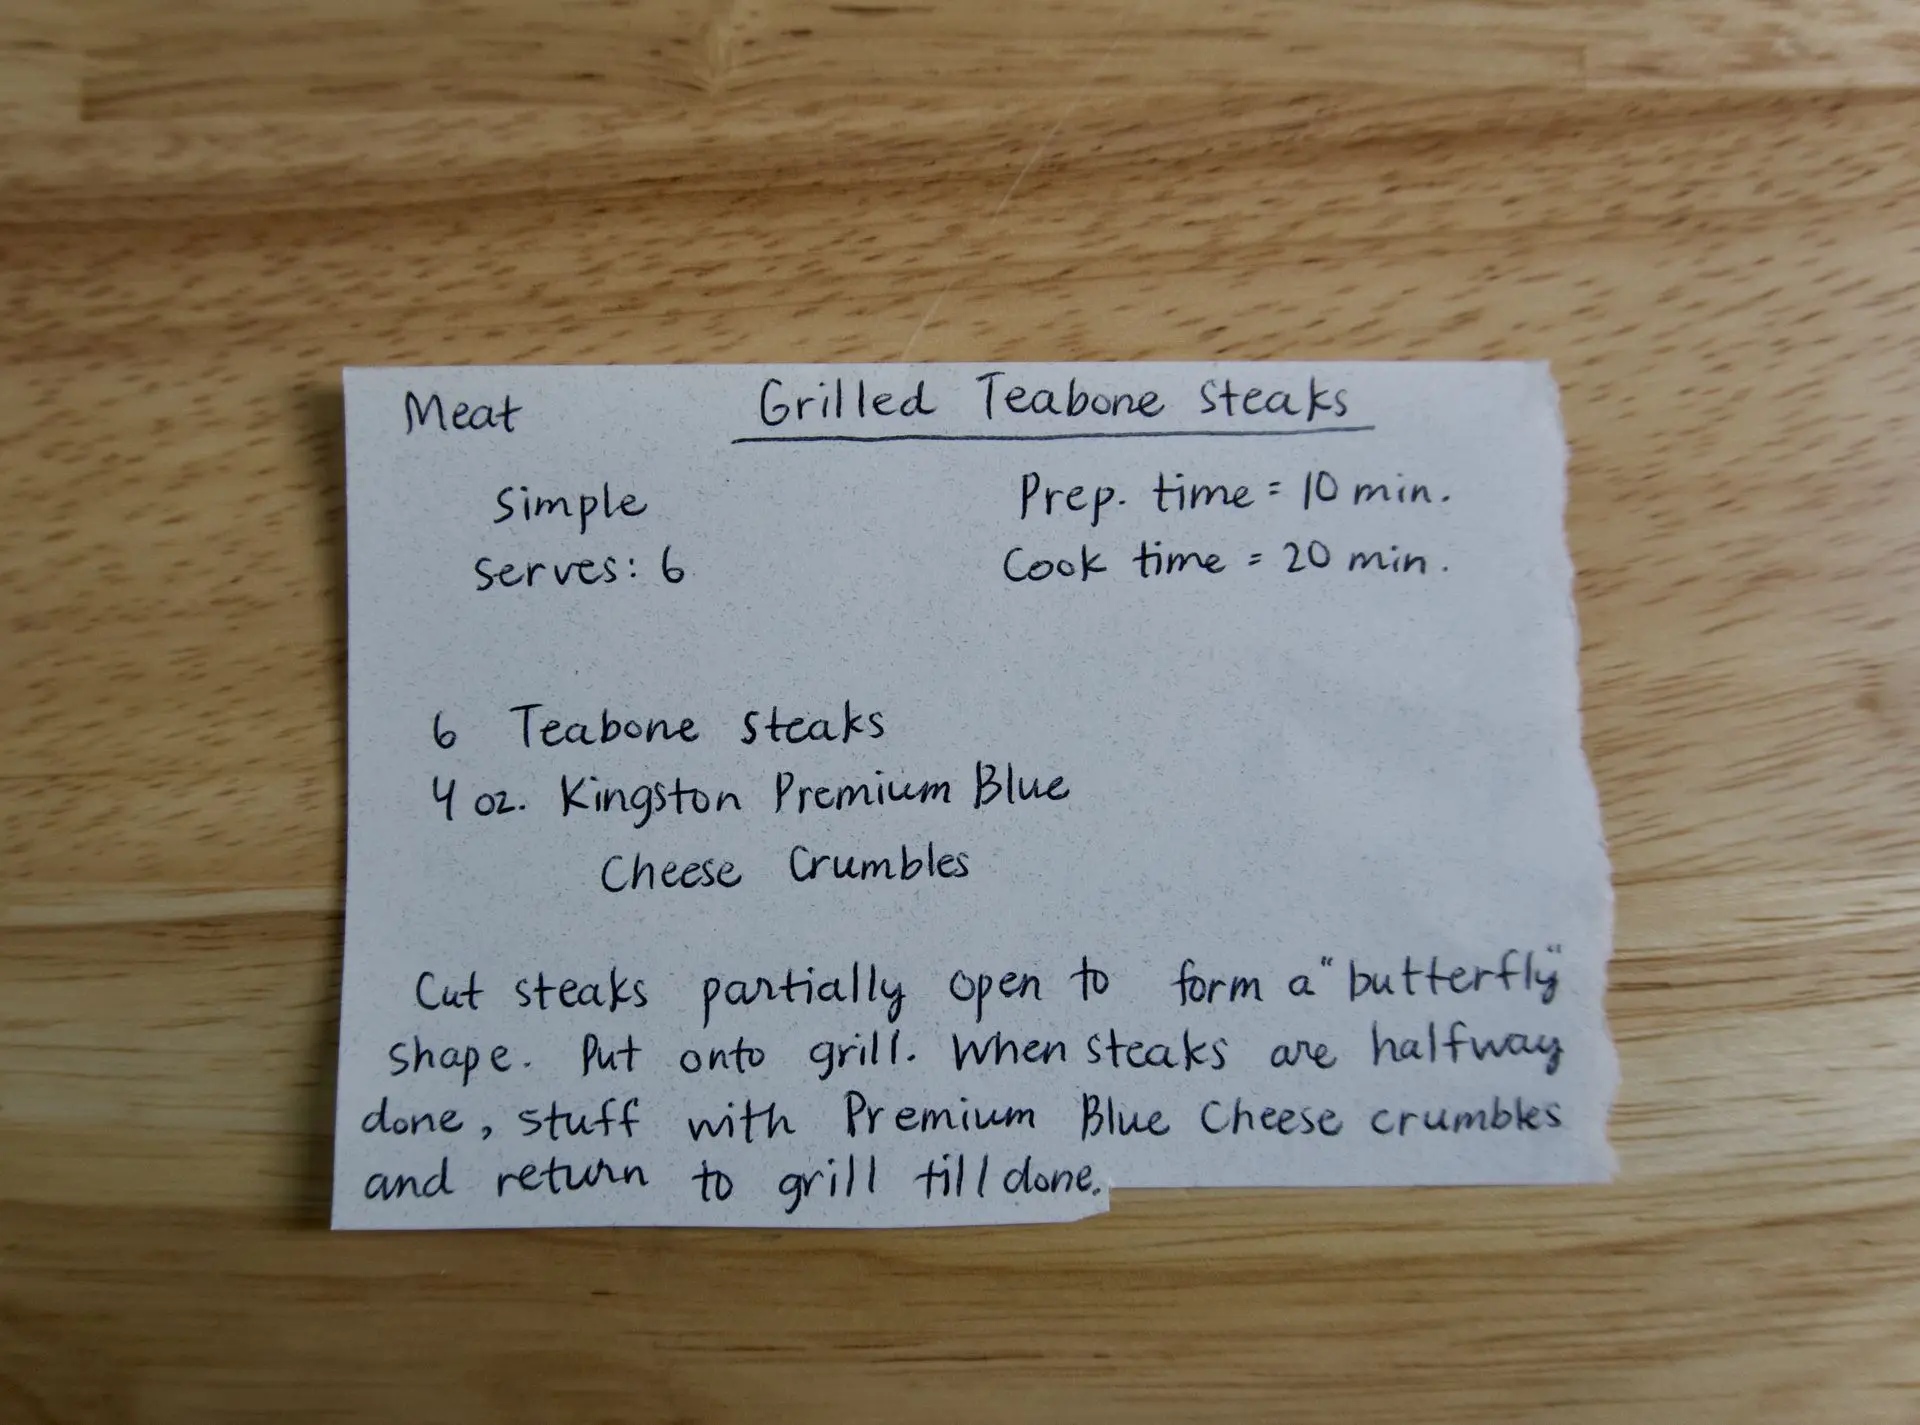 Meat Grilled Teabone Steaks
Simple Prep. time = 10 min.
serves: 6 Cook time = 20 min.
6 Teabone Steaks
4 oz. Kingston Premium Blue
Cheese Crumbles
Cut steaks partially open to form a "butterfly"
shape. Put onto grill. When steaks are halfway
done, stuff with Premium Blue Cheese crumbles
and return to grill till done.